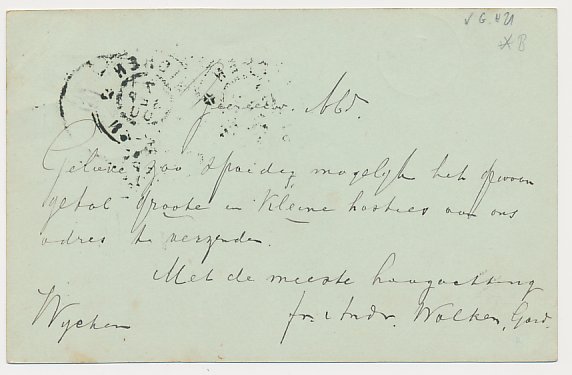 Geliefde zoo spoedig mogelijk het gewoon
getal groote en kleine hosties aan ons
adres te verzenden.
Met de meeste hoogachting
Wychen fr. Andr. Walken, Gard.